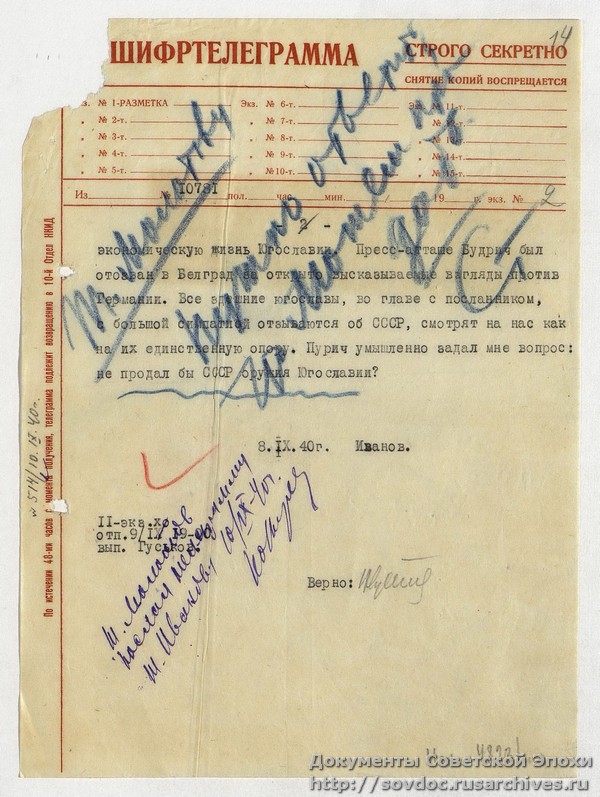 14
ШИФРТЕЛЕГРАММА
СТРОГО СЕКРЕТНО
СНЯТИЕ КОПИЙ ВОСПРЕЩАЕТСЯ
№ 1-РАЗМЕТКА Экз. № 6-т. Экз. № 11-т.
№ 2-т. № 7-т. № 12-т.
№ 3-т. № 8-т. № 13-т.
№ 4-т. № 9-т. № 14-т.
№ 5-т. № 10-т. № 15-т.
Из № 10781 пол. час. мин. 19 г. экз. № 2
т. Молотову
Нужно ответить
можем
- 2 -
экономическую жизнь Югославии. Пресс-атташе Будрич был
отозван в Белград за открыто высказываемые взгляды против
Германии. Все здешние югославы, во главе с посланником,
с большой симпатией отзываются об СССР, смотрят на нас как
на их единственную опору. Пурич умышленно задал мне вопрос:
не продал бы СССР оружия Югославии?
8.IX.40г. Иванов.
II-экз.хо
отп.9/IX
вып. Гуськов
т. Молотов
послал телеграмму
т. Иванову 10/IX-40г.
Верно:
По истечении 48-ми часов с момента получения, телеграмма подлежит возвращению в 10-й Отдел НКИД
№ 514/10.IX.40г.
Документы Советской Эпохи
http://sovdoc.rusarchives.ru